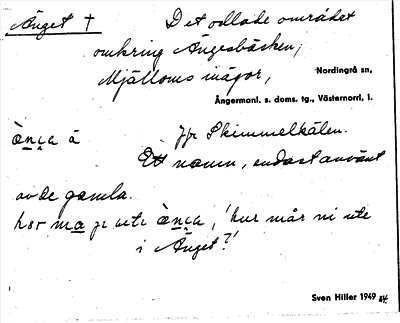 Änget † Det odlade området
omkring Ängesbäcken,
Mjälloms inägor, Nordingrå sn,
Ångermanl. s. doms. tg., Västernorrl. l.
Jfr Skimmelkälen.
Ett namn, endast använt
av de gamla.
'hur mår ni ute
i Änget?'
Sven Hiller 1949